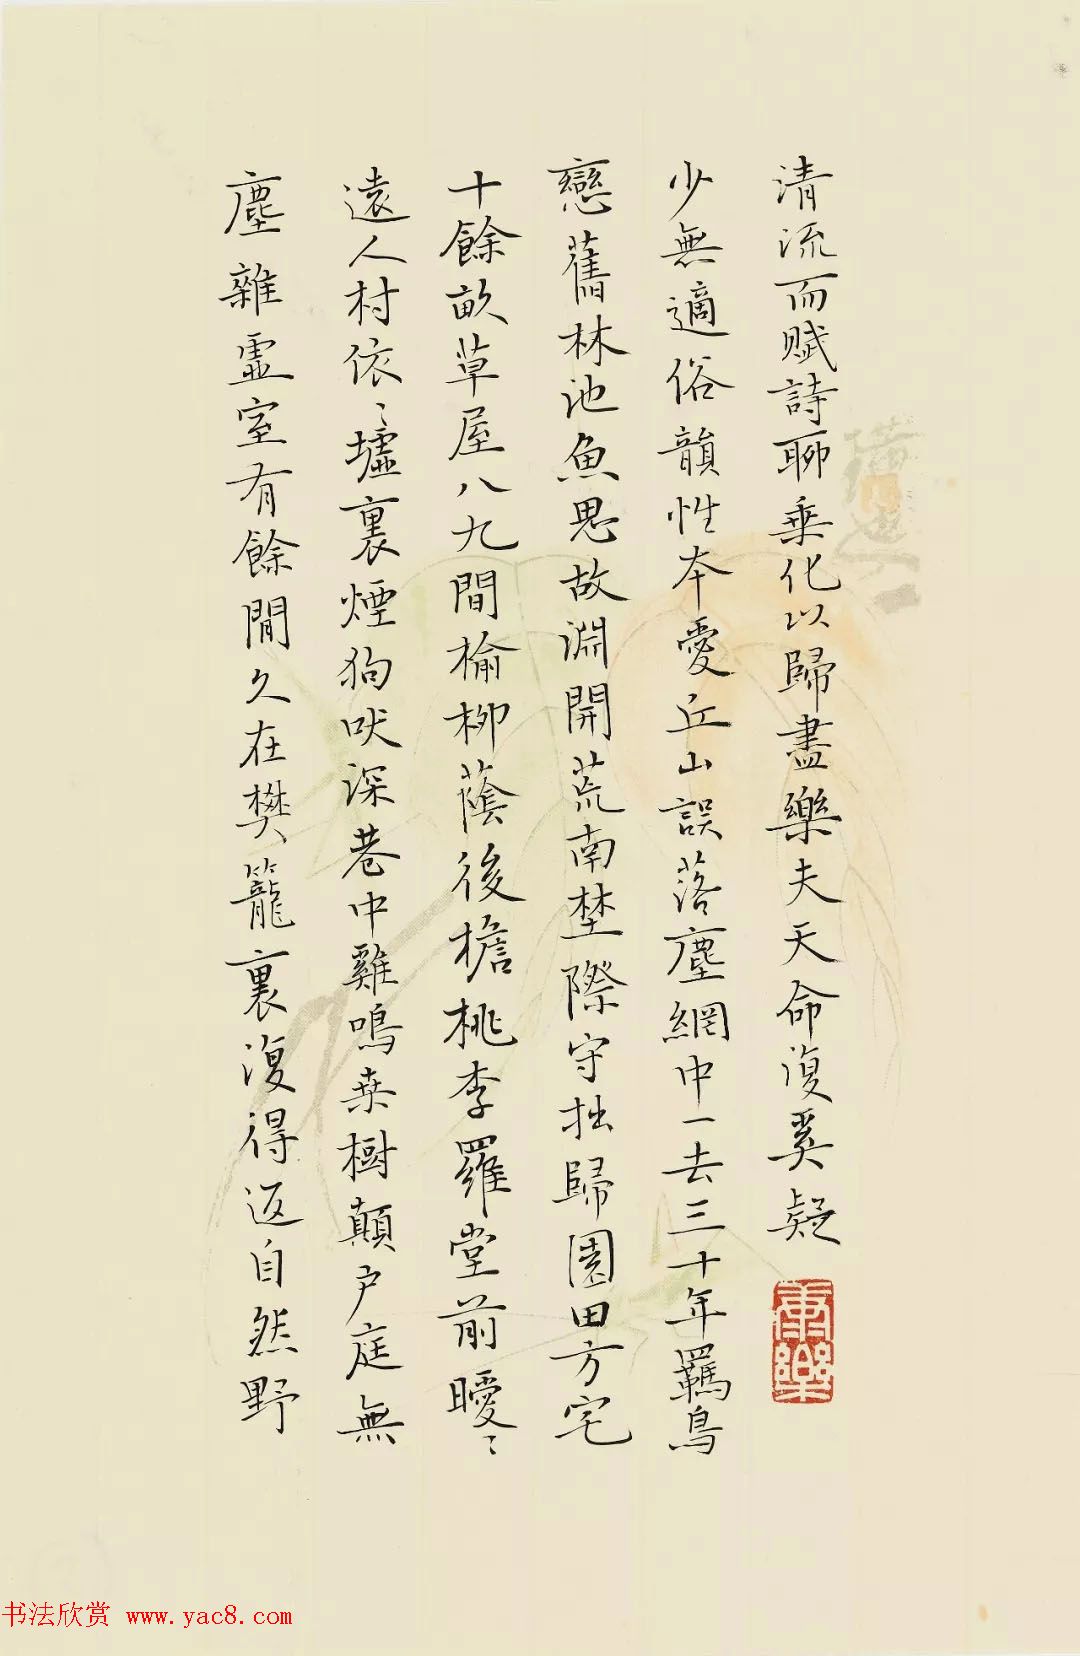 清流而賦詩聊乗化以歸盡樂夫天命復奚疑
少無適俗韻性本愛丘山誤落塵網中一去三十年羈鳥
戀舊林池魚思故淵開荒南埜際守拙歸園田方宅
十餘畝草屋八九間榆柳蔭後檐桃李羅堂前曖〻
遠人村依〻墟裏煙狗吠深巷中雞鳴桒樹顛户庭無
塵雜虛室有餘閒久在樊籠裏復得返自然野
书法欣赏 www.yac8.com